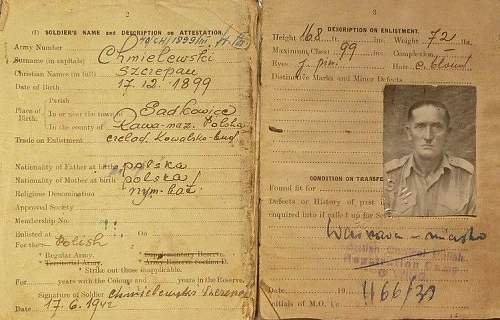 2
(1) SOLDIER'S NAME AND DESCRIPTION ON ATTESTATION.
Army Number 1899/III
Surname (in capitals) Chmielewski
Christian Names (in full) Szczepan
Date of Birth 17.12.1899
Place of Birth.
Parish
In or near the town of Sadkowice
In the county of Rawa-maz. Polska
Trade on Enlistment czelad. Kowalsko-bud
Nationality of Father at birth polska
Nationality of Mother at birth polska
Religious Denomination rzym-kat.
Approved Society
Membership No.
Enlisted at On
For the Polish
* Regular Army. * Supplementary Reserve.
* Territorial Army. * Army Reserve Section D.
* Strike out those inapplicable.
For years with the Colours and years in the Reserve.
Signature of Soldier Chmielewski Szczepan
Date 17.6.1942
3
DESCRIPTION ON ENLISTMENT.
Height 168 ft. Weight 72 lbs.
Maximum Chest 99 in. Complexion
Eyes Hair c. blond
Distinctive Marks and Minor Defects
CONDITION ON TRANSFE
Found fit for
Defects or History of past
enquired into if called up for Ser
Warszawa - miasto
Date 19
1166/33
Initials of M.O. i/c